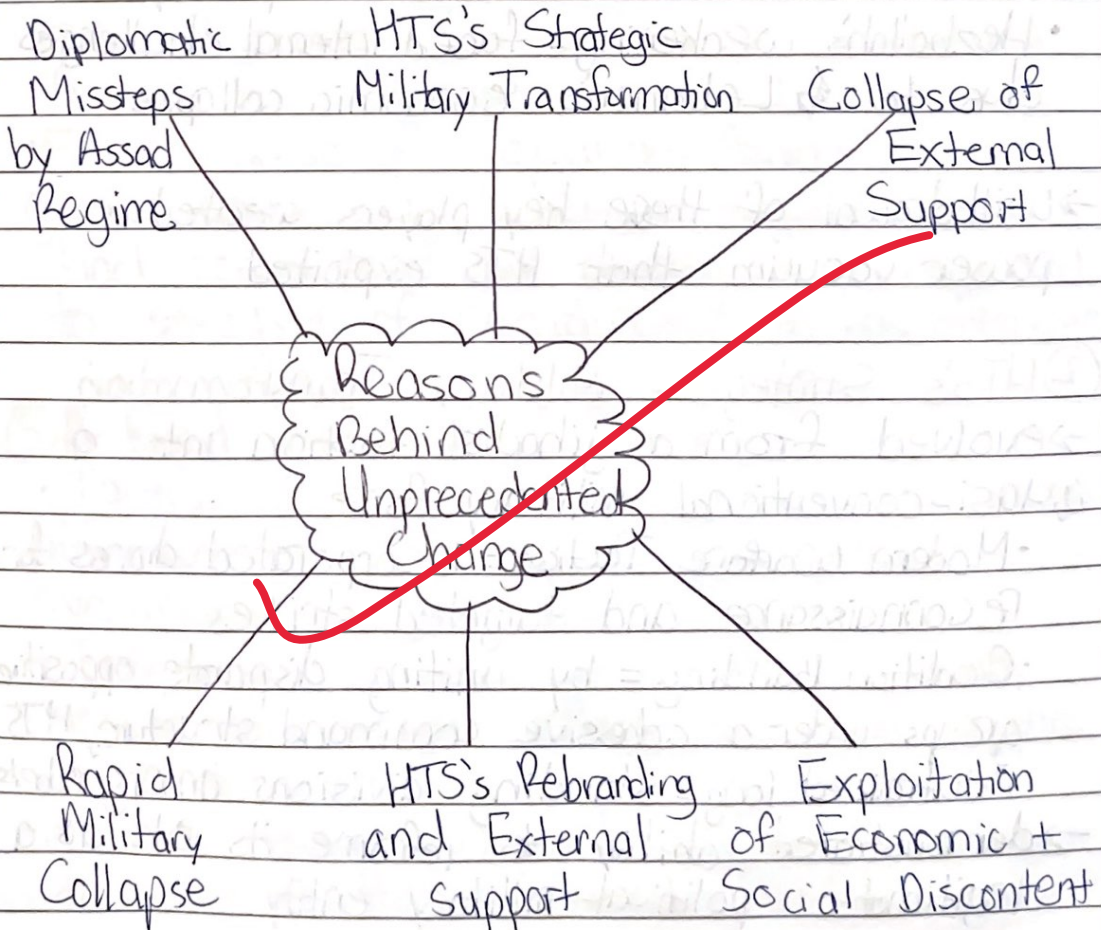 Diplomatic
Missteps
by Assad
Regime
HTS's Strategic
Military Transformation
Collapse of
External
Support
Reasons
Behind
Unprecedented
Change
Rapid
Military
Collapse
HTS's Rebranding
and External
Support
Exploitation
of Economic +
Social Discontent